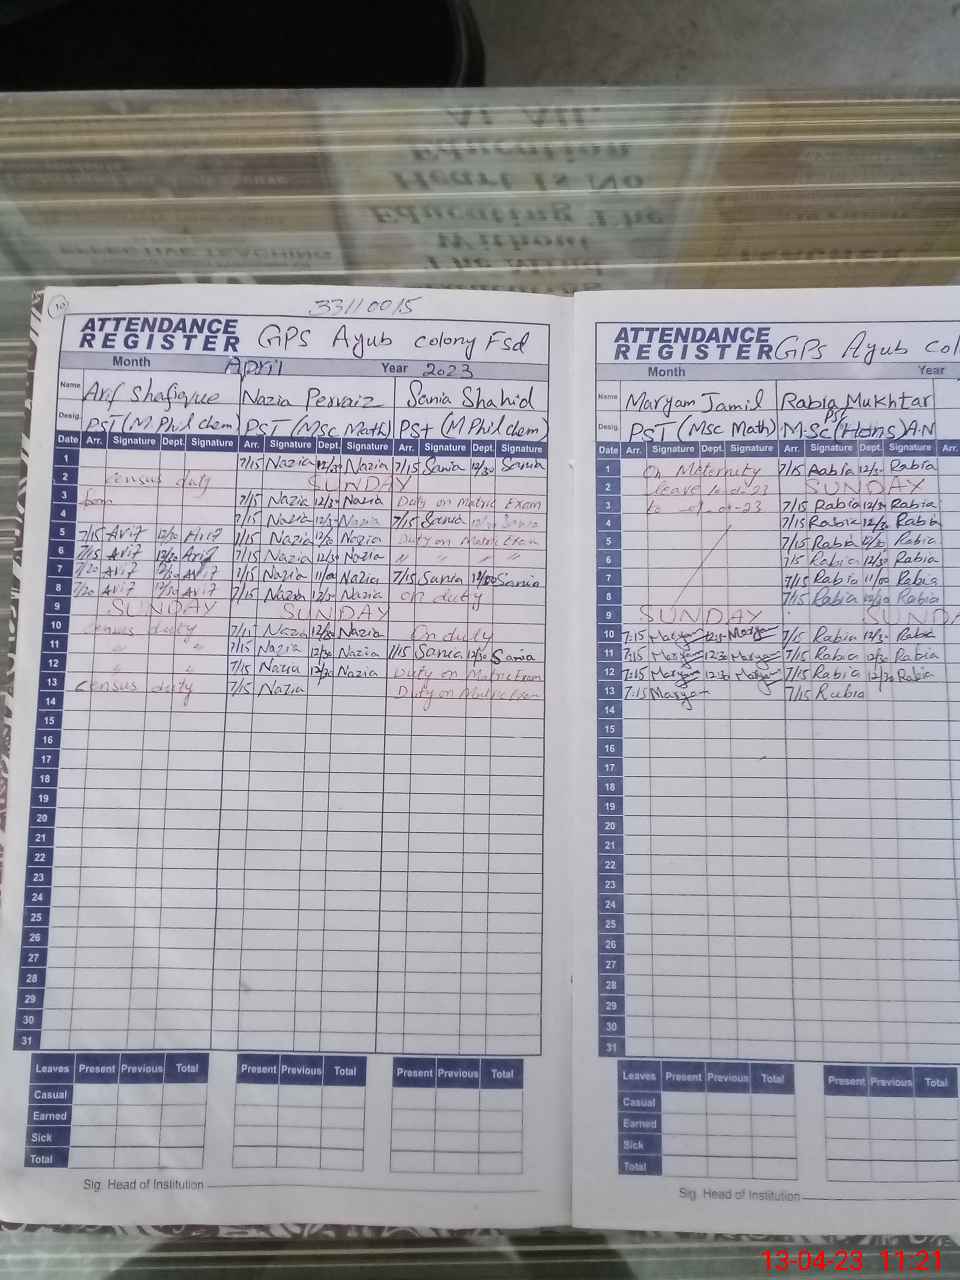 33110015
ATTENDANCE REGISTER GPS Ayub colony Fsd
Month April Year 2023
Name Arif Shafique Nazia Pervaiz Sania Shahid
Desig. PST (M Phil chem) PST (Msc Math) PST (M Phil chem)
Date Arr. Signature Dept. Signature Arr. Signature Dept. Signature Arr. Signature Dept. Signature
1 7/15 Nazia 12/30 Nazia 7/15 Sania 12/30 Sania
2 census duty SUNDAY
3 7/15 Nazia 12/30 Nazia Duty on Matric Exam
4 7/15 Nazia 12/30 Nazia 7/15 Sania 12/30 Sania
5 7/15 Arif 12/30 Arif 7/15 Nazia 12/30 Nazia Duty on Matric Exam
6 7/15 Arif 12/30 Arif 7/15 Nazia 12/30 Nazia " " " "
7 7/20 Arif Arif 7/15 Nazia 11/00 Nazia 7/15 Sania 11/00 Sania
8 7/20 Arif 12/30 Arif 7/15 Nazia 12/30 Nazia on duty
9 SUNDAY SUNDAY
10 census duty Nazia 12/30 Nazia On duty
11 " " 7/15 Nazia 12/30 Nazia 7/15 Sania 12/30 Sania
12 " " 7/15 Nazia 12/30 Nazia Duty on Matric Exam
13 census duty 7/15 Nazia Duty on Matric Exam
14
15
16
17
18
19
20
21
22
23
24
25
26
27
28
29
30
31
Leaves Present Previous Total Present Previous Total Present Previous Total
Casual
Earned
Sick
Total
Sig. Head of Institution
ATTENDANCE REGISTER GPS Ayub col
Month Year
Name Maryam Jamil Rabia Mukhtar
Desig. PST (Msc Math) PST M.Sc (Hons) A.N
Date Arr. Signature Dept. Signature Arr. Signature Dept. Signature Arr.
1 On Maternity 7/15 Rabia 12/30 Rabia
2 leave SUNDAY
3 to 7/15 Rabia 12/30 Rabia
4 7/15 Rabia 12/30 Rabia
5 7/15 Rabia 12/30 Rabia
6 7/15 Rabia 12/30 Rabia
7 7/15 Rabia 11/00 Rabia
8 7/15 Rabia 12/30 Rabia
9 SUNDAY SUND
10 7:15 Maryam 12:30 Maryam 7/15 Rabia 12/30 Rabia
11 7:15 Maryam 12:30 Maryam 7/15 Rabia 12/30 Rabia
12 7:15 Maryam 12:30 Maryam 7/15 Rabia 12/30 Rabia
13 7:15 Maryam 7/15 Rabia
14
15
16
17
18
19
20
21
22
23
24
25
26
27
28
29
30
31
Leaves Present Previous Total Present Previous Total
Casual
Earned
Sick
Total
Sig. Head of Institution
13-04-23 11:21